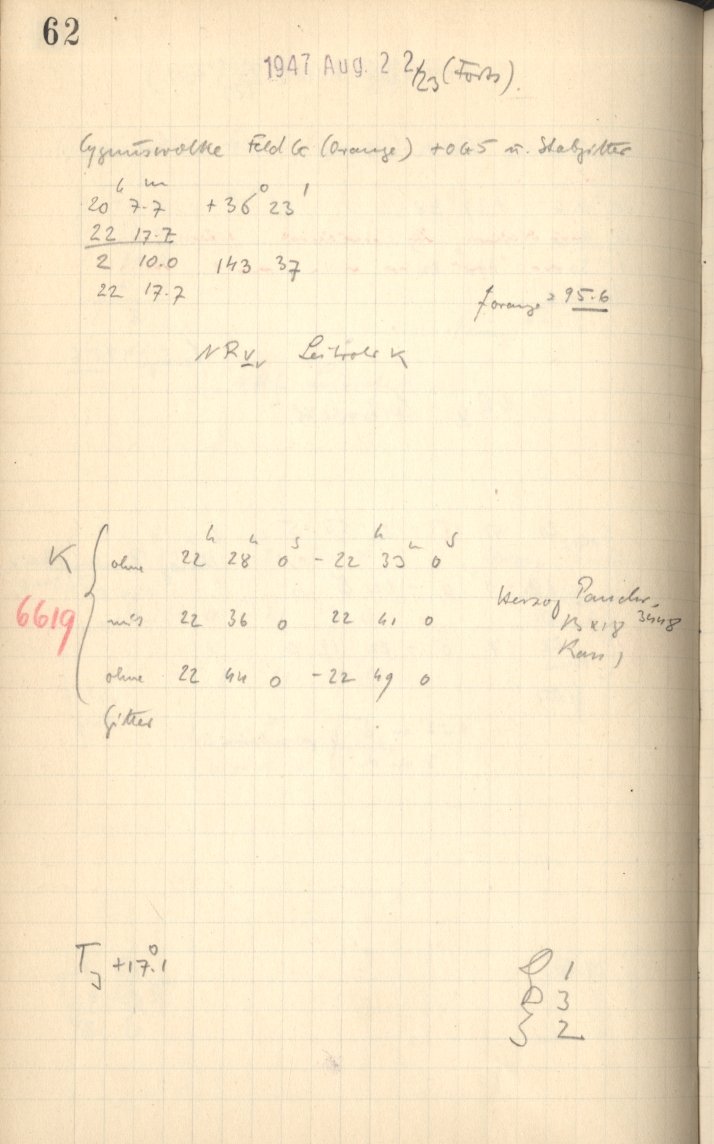 62
1947 Aug. 2 2/23 (Forts).
Cygnuswolke Feld G (Orange) + OG5 u. Stabgitter
20 h 7.7 m +36° 23'
22 17.7
2 10.0 143 37
22 17.7
f orange = 95.6
NR Leitrohr K
K
6619
ohne 22 h 28 m 0 s - 22 h 33 m 0 s
mit 22 36 0 22 41 0
Herzog Panchr.
3448
ohne 22 44 0 - 22 49 0
Gitter
T J +17°.1
1
3
2